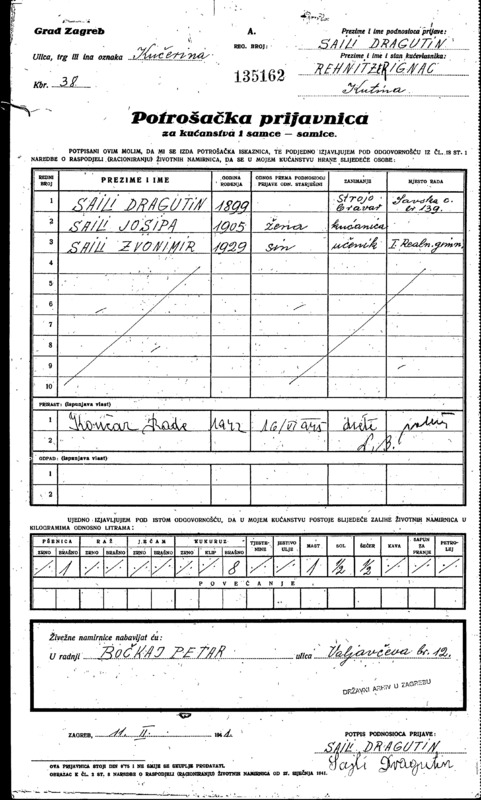 Grad Zagreb
Ulica, trg ili ina oznaka Kučerina
Kbr. 38
A.
REG. BROJ:
135162
Prezime i ime podnosioca prijave:
SAILI DRAGUTIN
Prezime i ime i stan kućevlasnika:
REHNITZER IGNAC
Kutina
Potrošačka prijavnica
za kućanstva i samce — samice.
POTPISANI OVIM MOLIM, DA MI SE IZDA POTROŠAČKA ISKAZNICA, TE PODJEDNO IZJAVLJUJEM POD ODGOVORNOŠĆU IZ ČL. 18 ST. 1
NAREDBE O RASPODJELI (RACIONIRANJU) ŽIVOTNIH NAMIRNICA, DA SE U MOJEM KUĆANSTVU HRANE SLIJEDEĆE OSOBE:
REDNI BROJ PREZIME I IME GODINA ROĐENJA ODNOS PREMA PODNOSIOCU PRIJAVE ODN. STARJEŠINI ZANIMANJE MJESTO RADA
1 SAILI DRAGUTIN 1899 Strojobravar Savska c. br 139.
2 SAILI JOSIPA 1905 žena kućanica
3 SAILI ZVONIMIR 1929 sin učenik I Realn. gimn.
4
5
6
7
8
9
10
PRIRAST: (Ispunjava vlast)
1 Končar Rade
2
ODPAD: (Ispunjava vlast)
1
2
UJEDNO IZJAVLJUJEM POD ISTOM ODGOVORNOŠĆU, DA U MOJEM KUĆANSTVU POSTOJE SLIJEDEĆE ZALIHE ŽIVOTNIH NAMIRNICA U
KILOGRAMIMA ODNOSNO LITRAMA:
PŠENICA RAŽ JEČAM KUKURUZ TJESTENINE JESTIVO ULJE MAST SOL ŠEĆER KAVA SAPUN ZA PRANJE PETROLEJ
ZRNO BRAŠNO ZRNO BRAŠNO ZRNO BRAŠNO ZRNO KLIP BRAŠNO
1 8 1 1/2 1/2
POVEĆANJE
Živežne namirnice nabavljat ću:
U radnji BOČKAJ PETAR ulica Valjavčeva br. 12.
DRŽAVNI ARHIV U ZAGREBU
ZAGREB, 11. II. 1941.
POTPIS PODNOSIOCA PRIJAVE:
SAILI DRAGUTIN
Sajli Dragutin
OVA PRIJAVNICA STOJI DIN 0'75 I NE SMIJE SE SKUPLJE PRODAVATI.
OBRAZAC K ČL. 2 ST. 2 NAREDBE O RASPODJELI (RACIONIRANJU) ŽIVOTNIH NAMIRNICA OD 27. SIJEČNJA 1941.